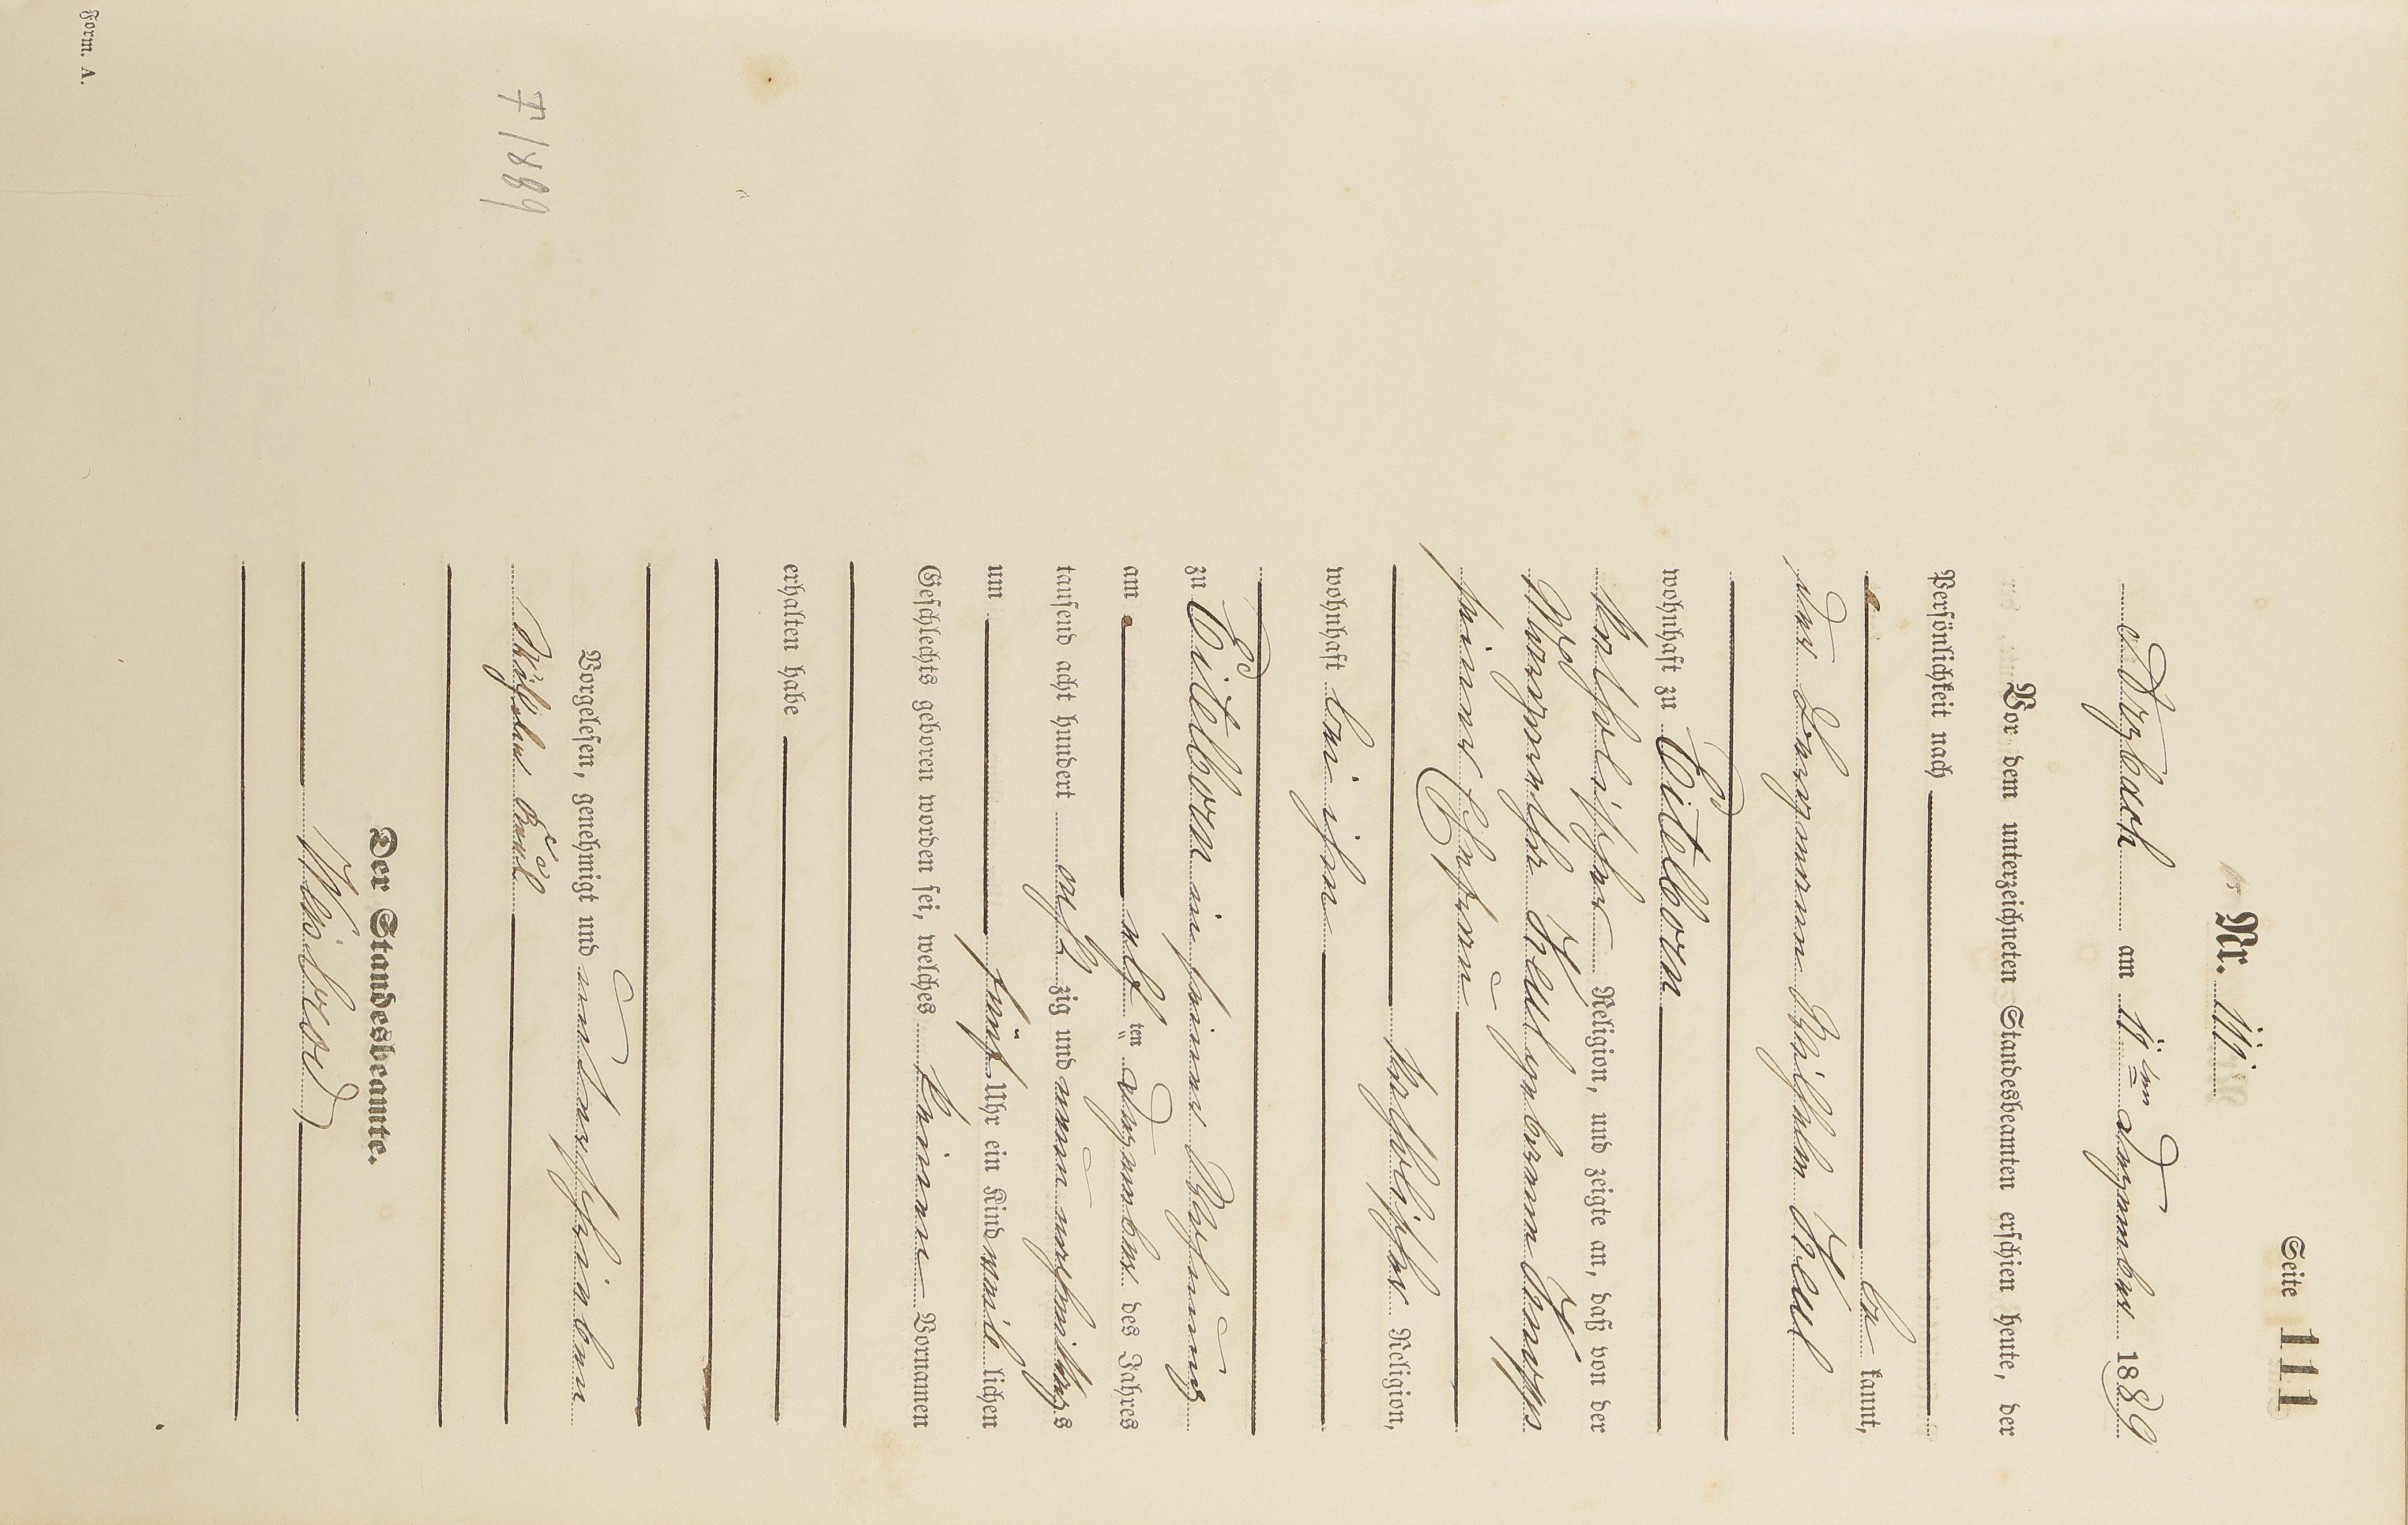 Seite 111
Nr. 111.
Arzbach am 11ten Dezember 1889
Vor dem unterzeichneten Standesbeamten erschien heute, der
Persönlichkeit nach
be kannt,
der Bergmann Wilhelm Keul
wohnhaft zu Eitelborn
katholischer Religion, und zeigte an, daß von der
Margarethe Keul geborenen Knopp
seiner Ehefrau
katholischer Religion,
wohnhaft bei ihm
zu Eitelborn in seiner Wohnung
am elf ten Dezember des Jahres
tausend acht hundert acht zig und neun nachmittags
um fünf Uhr ein Kind weib lichen
Geschlechts geboren worden sei, welches keinen Vornamen
erhalten habe
Vorgelesen, genehmigt und unterschrieben
Wilhelm Keul
Der Standesbeamte.
7/1889
Form. A.